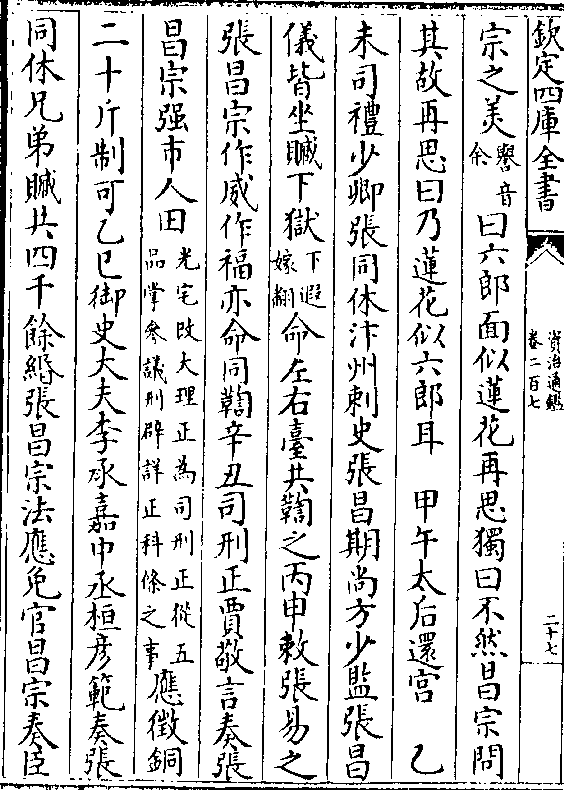 欽定四庫全書
資治通鑑
卷二百七
二十七
宗之美譽音余曰六郎面似蓮花再思獨曰不然昌宗問
其故再思曰乃蓮花似六郎耳 甲午太后還宮 乙
未司禮少卿張同休汴州刺史張昌期尚方少監張昌
儀皆坐贓下獄下遐嫁翻命左右臺共鞫之丙申敕張易之
張昌宗作威作福亦命同鞫辛丑司刑正賈敬言奏張
昌宗强市人田光宅改大理正為司刑正從五品掌叅議刑辟詳正科條之事應徵銅
二十斤制可乙巳御史大夫李承嘉中丞桓彦範奏張
同休兄弟贓共四千餘緡張昌宗法應免官昌宗奏臣